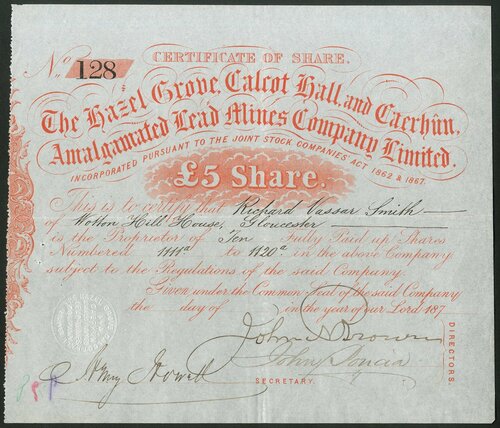 CERTIFICATE OF SHARE.
No. 128
The Hazel Grove, Calcot Hall, and Caerhûn,
Amalgamated Lead Mines Company Limited.
INCORPORATED PURSUANT TO THE JOINT STOCK COMPANIES' ACT 1862 & 1867.
£5 Share.
This is to certify that Richard Vassar Smith
of Wotton Hill House, Gloucester
is the Proprietor of Ten Fully Paid up Shares
Numbered 1111a to 1120a in the above Company
subject to the Regulations of the said Company.
Given under the Common Seal of the said Company
the day of in the year of our Lord 187
John Brown
John
Henry Howell
SECRETARY.
DIRECTORS.